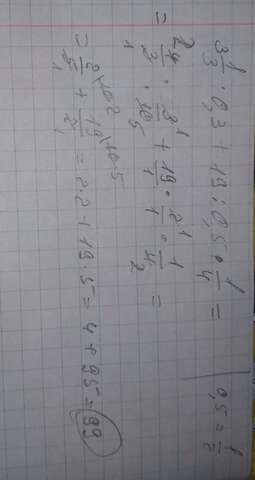 3 1/3 · 0,3 + 19 : 0,5 · 1/4 = 0,5 = 1/2
= 4/3 · 3/10 + 19/1 · 2/1 · 1/4 =
= 2/5 + 19/2 = 2·2 + 19·5 = 4 + 95 = 99